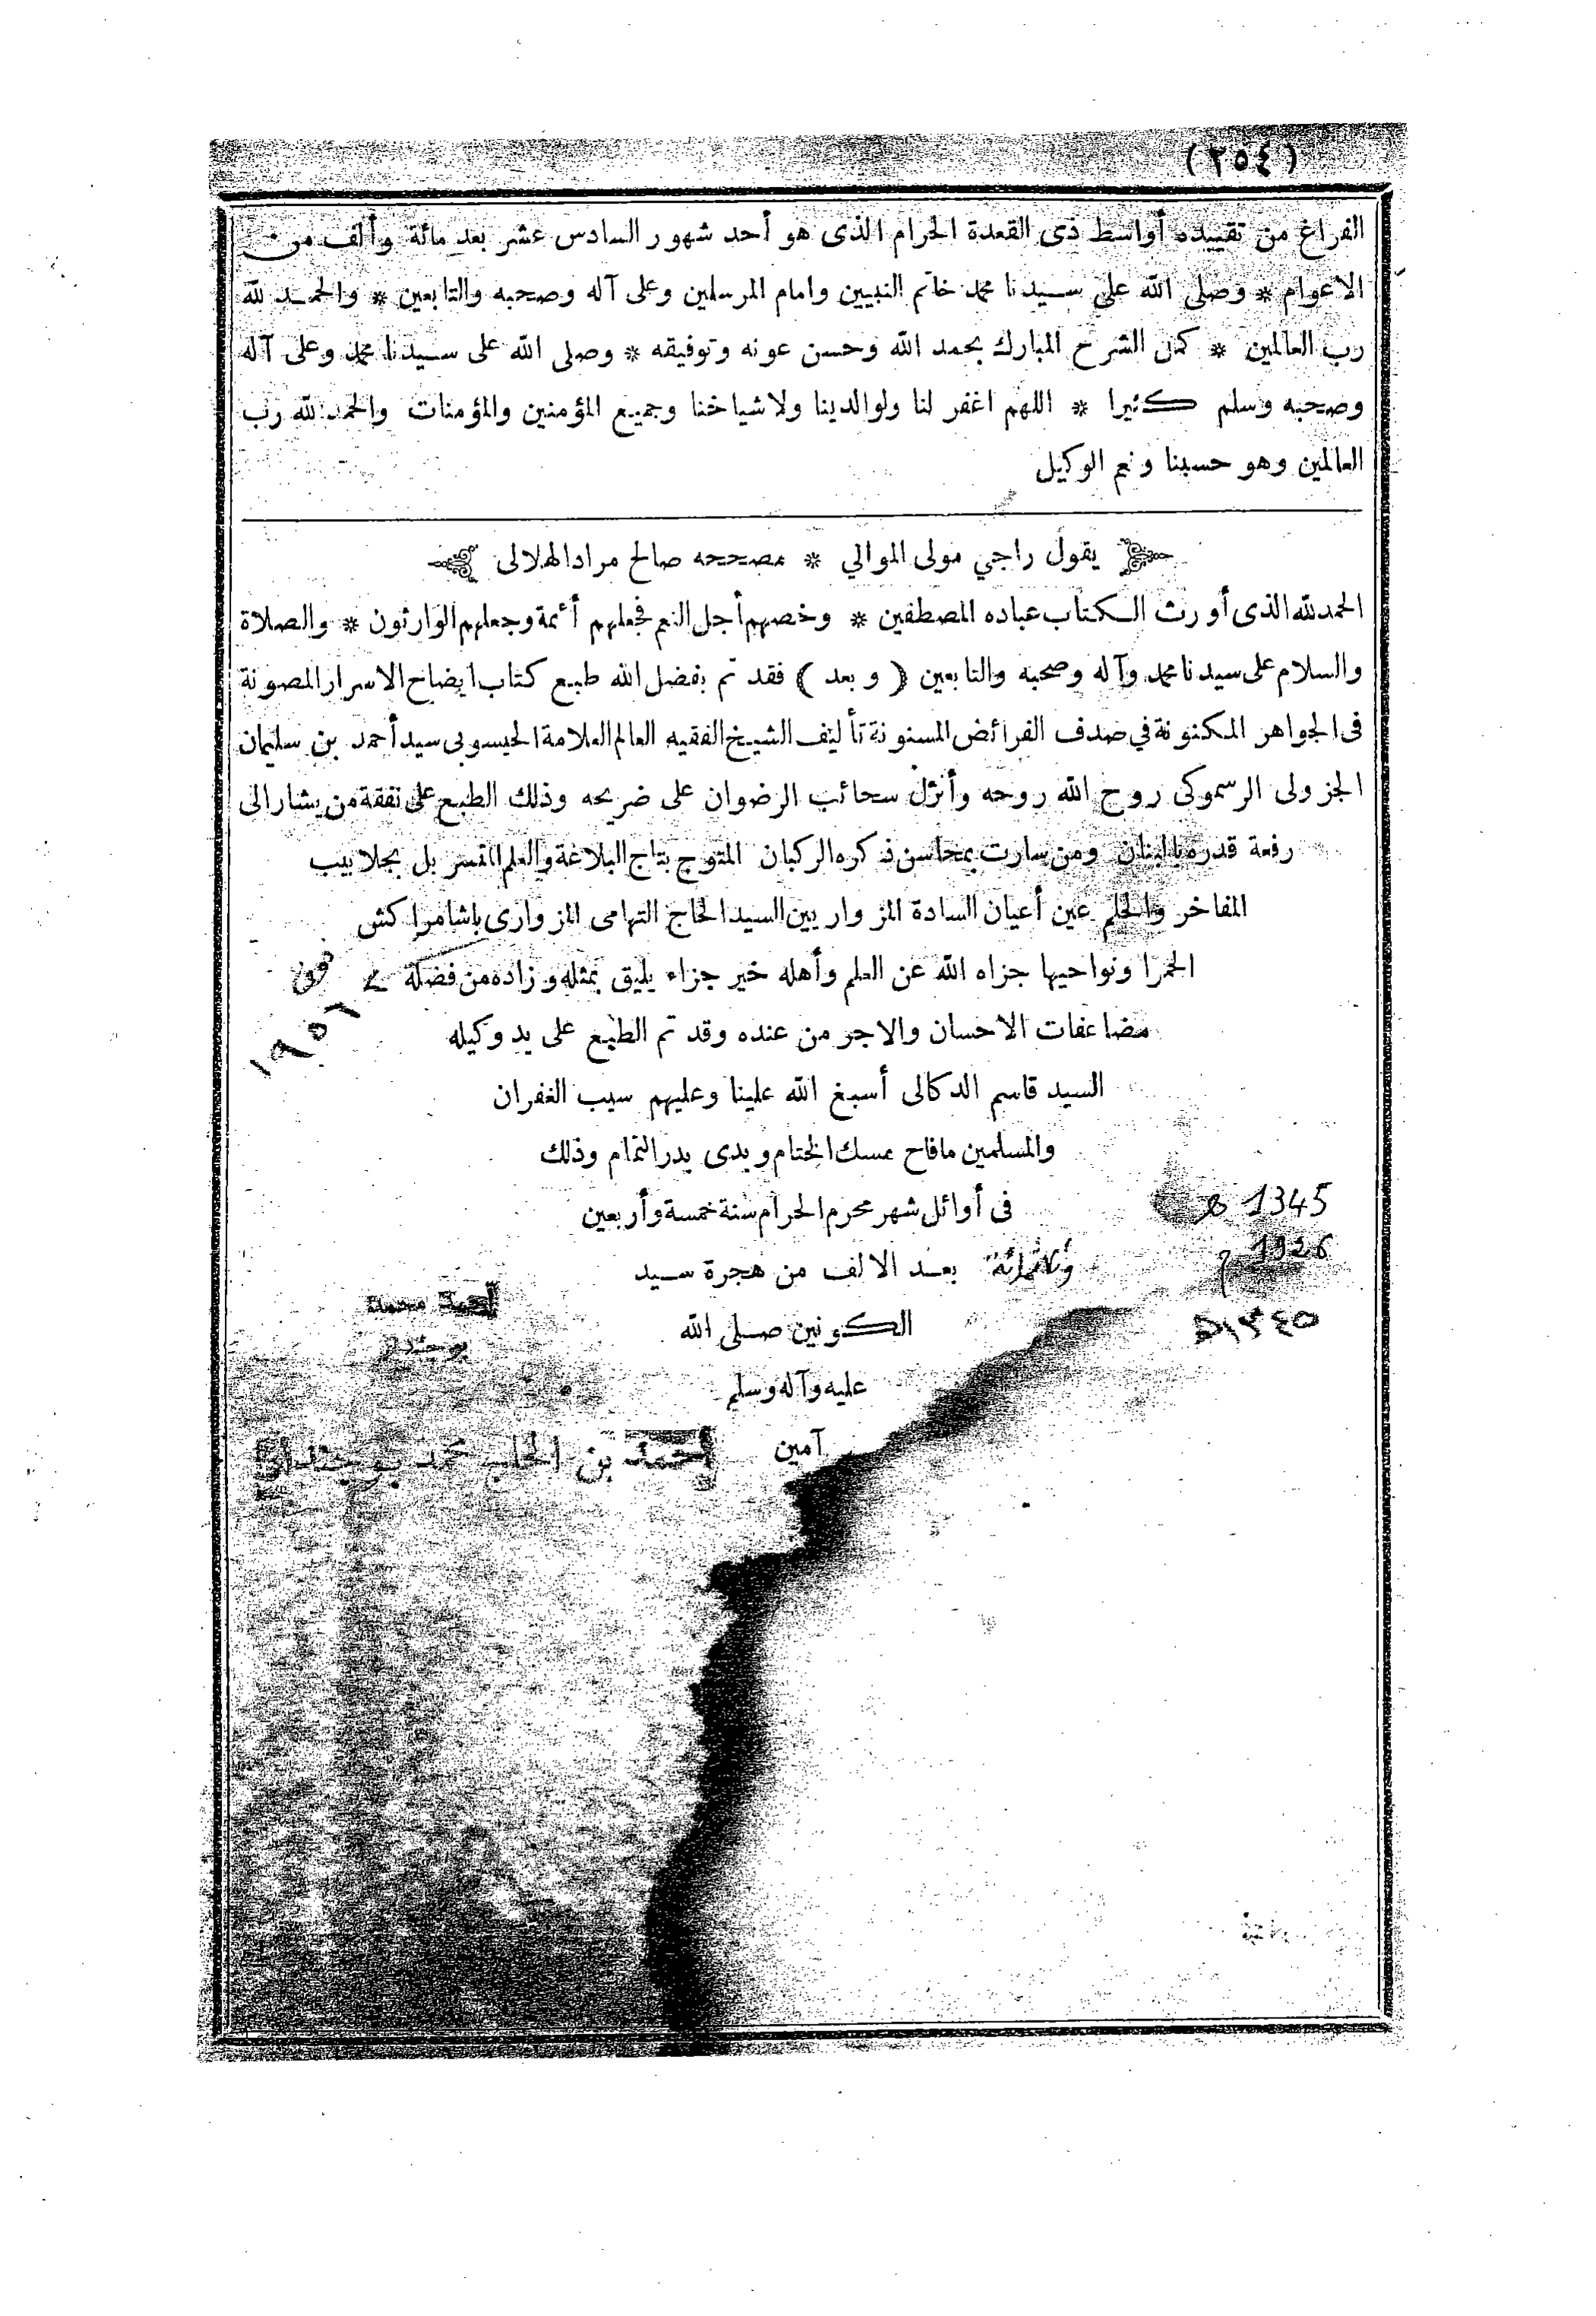 (٢٥٤)
الفراغ من تقييده أواسط ذى القعدة الحرام الذى هو أحد شهور السادس عشر بعد مائة وألف من
الاعوام * وصلى الله على سيدنا محمد خاتم النبيين وامام المرسلين وعلى آله وصحبه والتابعين * والحمد لله
رب العالمين * كمل الشرح المبارك بحمد الله وحسن عونه وتوفيقه * وصلى الله على سيدنا محمد وعلى آله
وصحبه وسلم كثيرا * اللهم اغفر لنا ولوالدينا ولاشياخنا وجميع المؤمنين والمؤمنات والحمد لله رب
العالمين وهو حسبنا ونعم الوكيل
يقول راجي مولى الموالي * مصححه صالح مراد الهلالى
الحمد لله الذى أورث الكتاب عباده المصطفين * وخصهم أجل النعم فجعلهم أئمة وجعلهم الوارثون * والصلاة
والسلام على سيدنا محمد وآله وصحبه والتابعين (وبعد) فقد تم بفضل الله طبع كتاب ايضاح الاسرار المصونة
فى الجواهر المكنونة في صدف الفرائض المسنونة تأليف الشيخ الفقيه العالم العلامة الحيسوبى سيد أحمد بن سليمان
الجزولى الرسموكى روح الله روحه وأنزل سحائب الرضوان على ضريحه وذلك الطبع على نفقة من يشار الى
رفعة قدره بالبنان ومن سارت بمحاسن ذكره الركبان المتوج بتاج البلاغة والعلم المتسربل بجلابيب
المفاخر والحلم عين أعيان السادة المزواريين السيد الحاج التهامى المزوارى باشا مراكش
الحمرا ونواحيها جزاه الله عن العلم وأهله خير جزاء يليق بمثله وزاده من فضله
توفي
١٩٥٦
مضاعفات الاحسان والاجر من عنده وقد تم الطبع على يد وكيله
السيد قاسم الدكالى أسبغ الله علينا وعليهم سيب الغفران
والمسلمين ما فاح مسك الختام وبدى بدر التمام وذلك
فى أوائل شهر محرم الحرام سنة خمسة وأربعين
1345 ه
وثلاثمائة بعد الالف من هجرة سيد
1926 م
الكونين صلى الله
١٣٤٥ه
أحمد محمد
عليه وآله وسلم
آمين
أحمد بن الحاج محمد